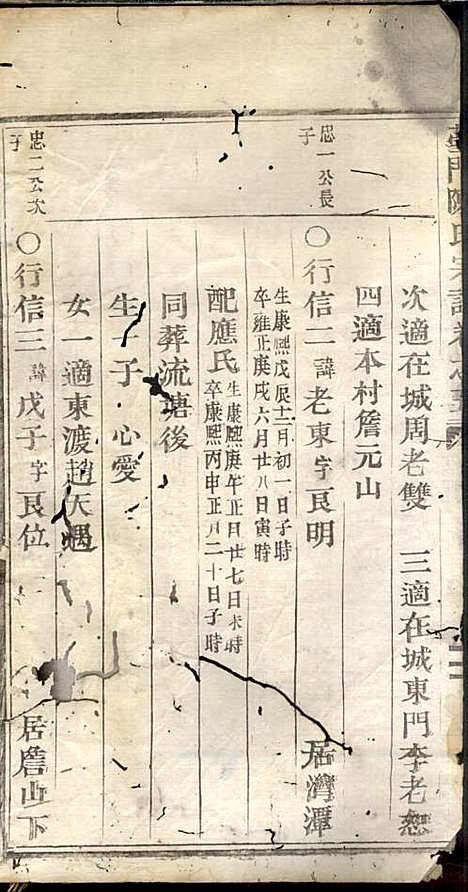 臺門陳氏宗譜卷之
次適在城周老雙　三適在城東門李老恕
四適本村詹元山
忠一公長子
○行信二諱老東字良明　居灣潭
生康熙戊辰十二月初一日子時
卒雍正庚戌六月廿八日寅時
配應氏生康熙庚午正月廿七日未時
卒康熙丙申正月二十日子時
同葬流塘後
生一子心愛
女一適東渡趙天遇
忠二公次子
○行信三諱戊子字良位　居詹山下